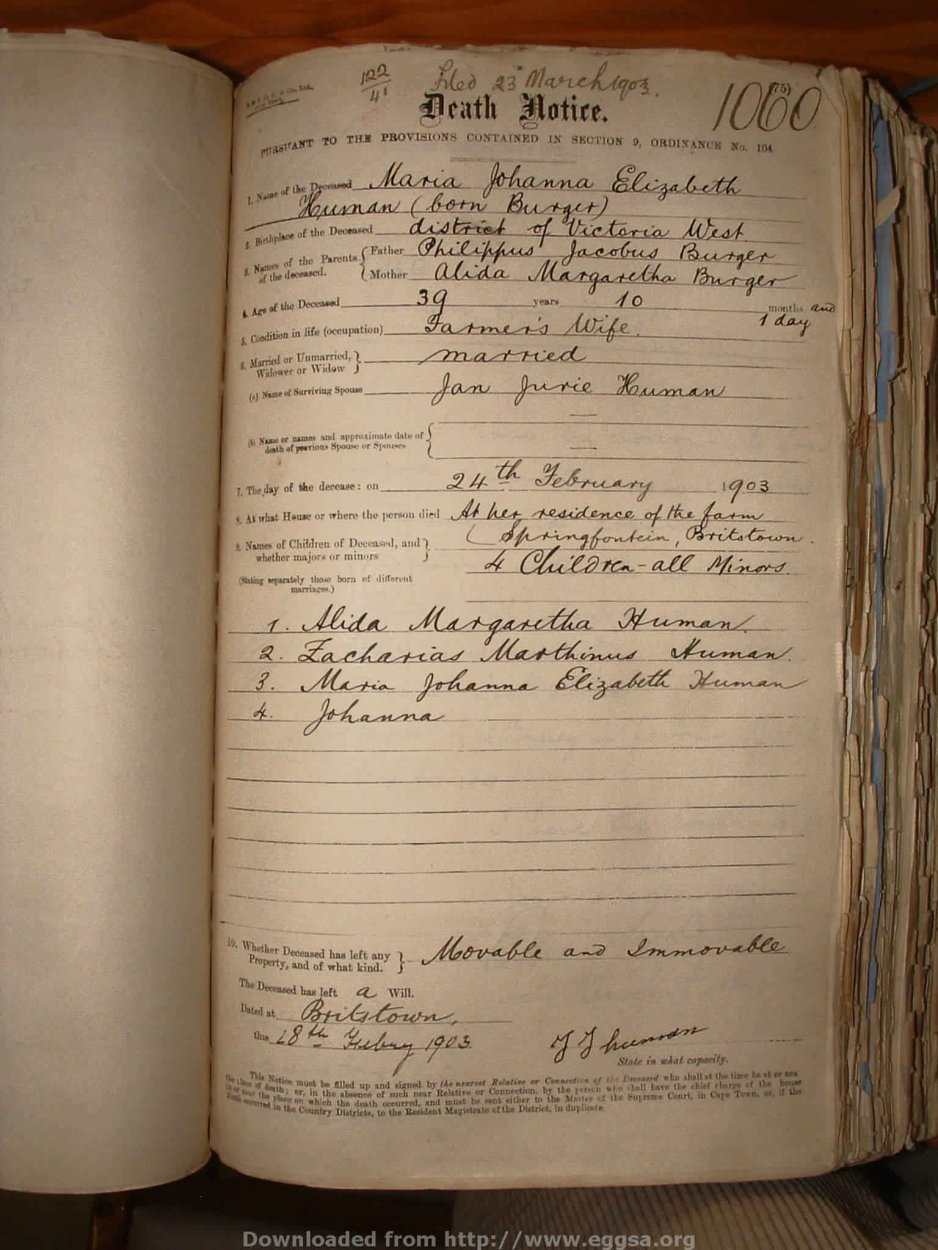 122
41
Filed 23 March 1903.
1060
(75)
Death Notice.
PURSUANT TO THE PROVISIONS CONTAINED IN SECTION 9, ORDINANCE No. 104
1. Name of the Deceased Maria Johanna Elizabeth
Human (born Burger)
2. Birthplace of the Deceased district of Victoria West
3. Names of the Parents of the deceased. { Father Philippus Jacobus Burger
Mother Alida Margaretha Burger
4. Age of the Deceased 39 years 10 months and
1 day
5. Condition in life (occupation) Farmer's Wife.
6. Married or Unmarried, Widower or Widow } married
(a) Name of Surviving Spouse Jan Jurie Human
(b) Name or names and approximate date of death of previous Spouse or Spouses { —
—
7. The day of the decease: on 24th February 1903
8. At what House or where the person died At her residence of the farm
( Springfontein, Britstown.
9. Names of Children of Deceased, and whether majors or minors } 4 Children - all Minors.
(Stating separately those born of different marriages.)
1. Alida Margaretha Human.
2. Zacharias Marthinus Human.
3. Maria Johanna Elizabeth Human
4. Johanna
10. Whether Deceased has left any Property, and of what kind. } Movable and Immovable
The Deceased has left a Will.
Dated at Britstown,
this 28th Febuy 1903
J J human
State in what capacity.
This Notice must be filled up and signed by the nearest Relative or Connection of the Deceased who shall at the time be at or near
the place of death; or, in the absence of such near Relative or Connection, by the person who shall have the chief charge of the house
in or near the place on which the death occurred, and must be sent either to the Master of the Supreme Court, in Cape Town, or, if the
death occurred in the Country Districts, to the Resident Magistrate of the District, in duplicate.
Downloaded from http://www.eggsa.org